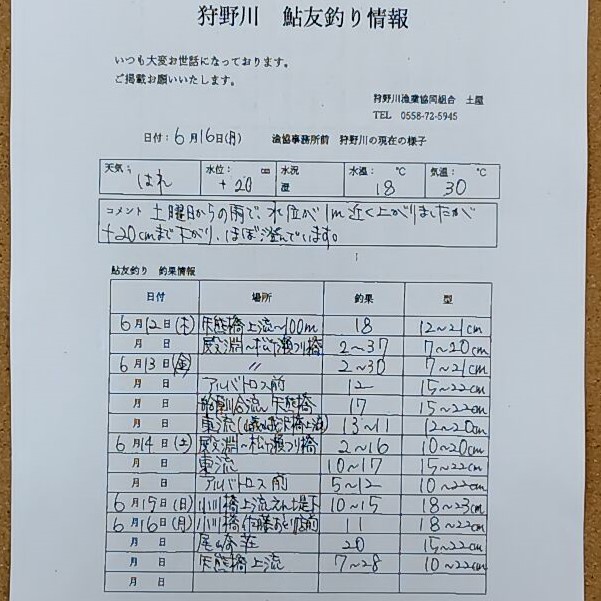 狩野川 鮎友釣り情報
いつも大変お世話になっております。
ご掲載お願いいたします。
狩野川漁業協同組合 土屋
TEL 0558-72-5945
日付：6月16日(月) 漁協事務所前 狩野川の現在の様子
天気： 水位： cm 水況 水温： ℃ 気温： ℃
はれ +20 澄 18 30
コメント 土曜日からの雨で、水位が1m近く上がりましたが
+20cmまで下がり、ほぼ澄んでいます。
鮎友釣り 釣果情報
日付 場所 釣果 型
6月12日(木) 橋上流〜100m 18 12〜21cm
月 日 淵〜松ヶ瀬つり橋 2〜37 7〜20cm
6月13日(金) 〃 2〜30 7〜21cm
月 日 アルバトロス前 12 15〜22cm
月 日 合流 17 15〜22cm
月 日 東流 13〜11 12〜20cm
6月14日(土) 淵〜松ヶ瀬つり橋 2〜16 10〜20cm
月 日 東流 10〜17 15〜22cm
月 日 アルバトロス前 5〜12 10〜22cm
6月15日(日) 小川橋上流えん堤下 10〜15 18〜23cm
6月16日(月) 小川橋佐藤おとり店前 11 18〜22cm
月 日 荘 20 15〜22cm
月 日 橋上流 7〜28 10〜22cm
月 日